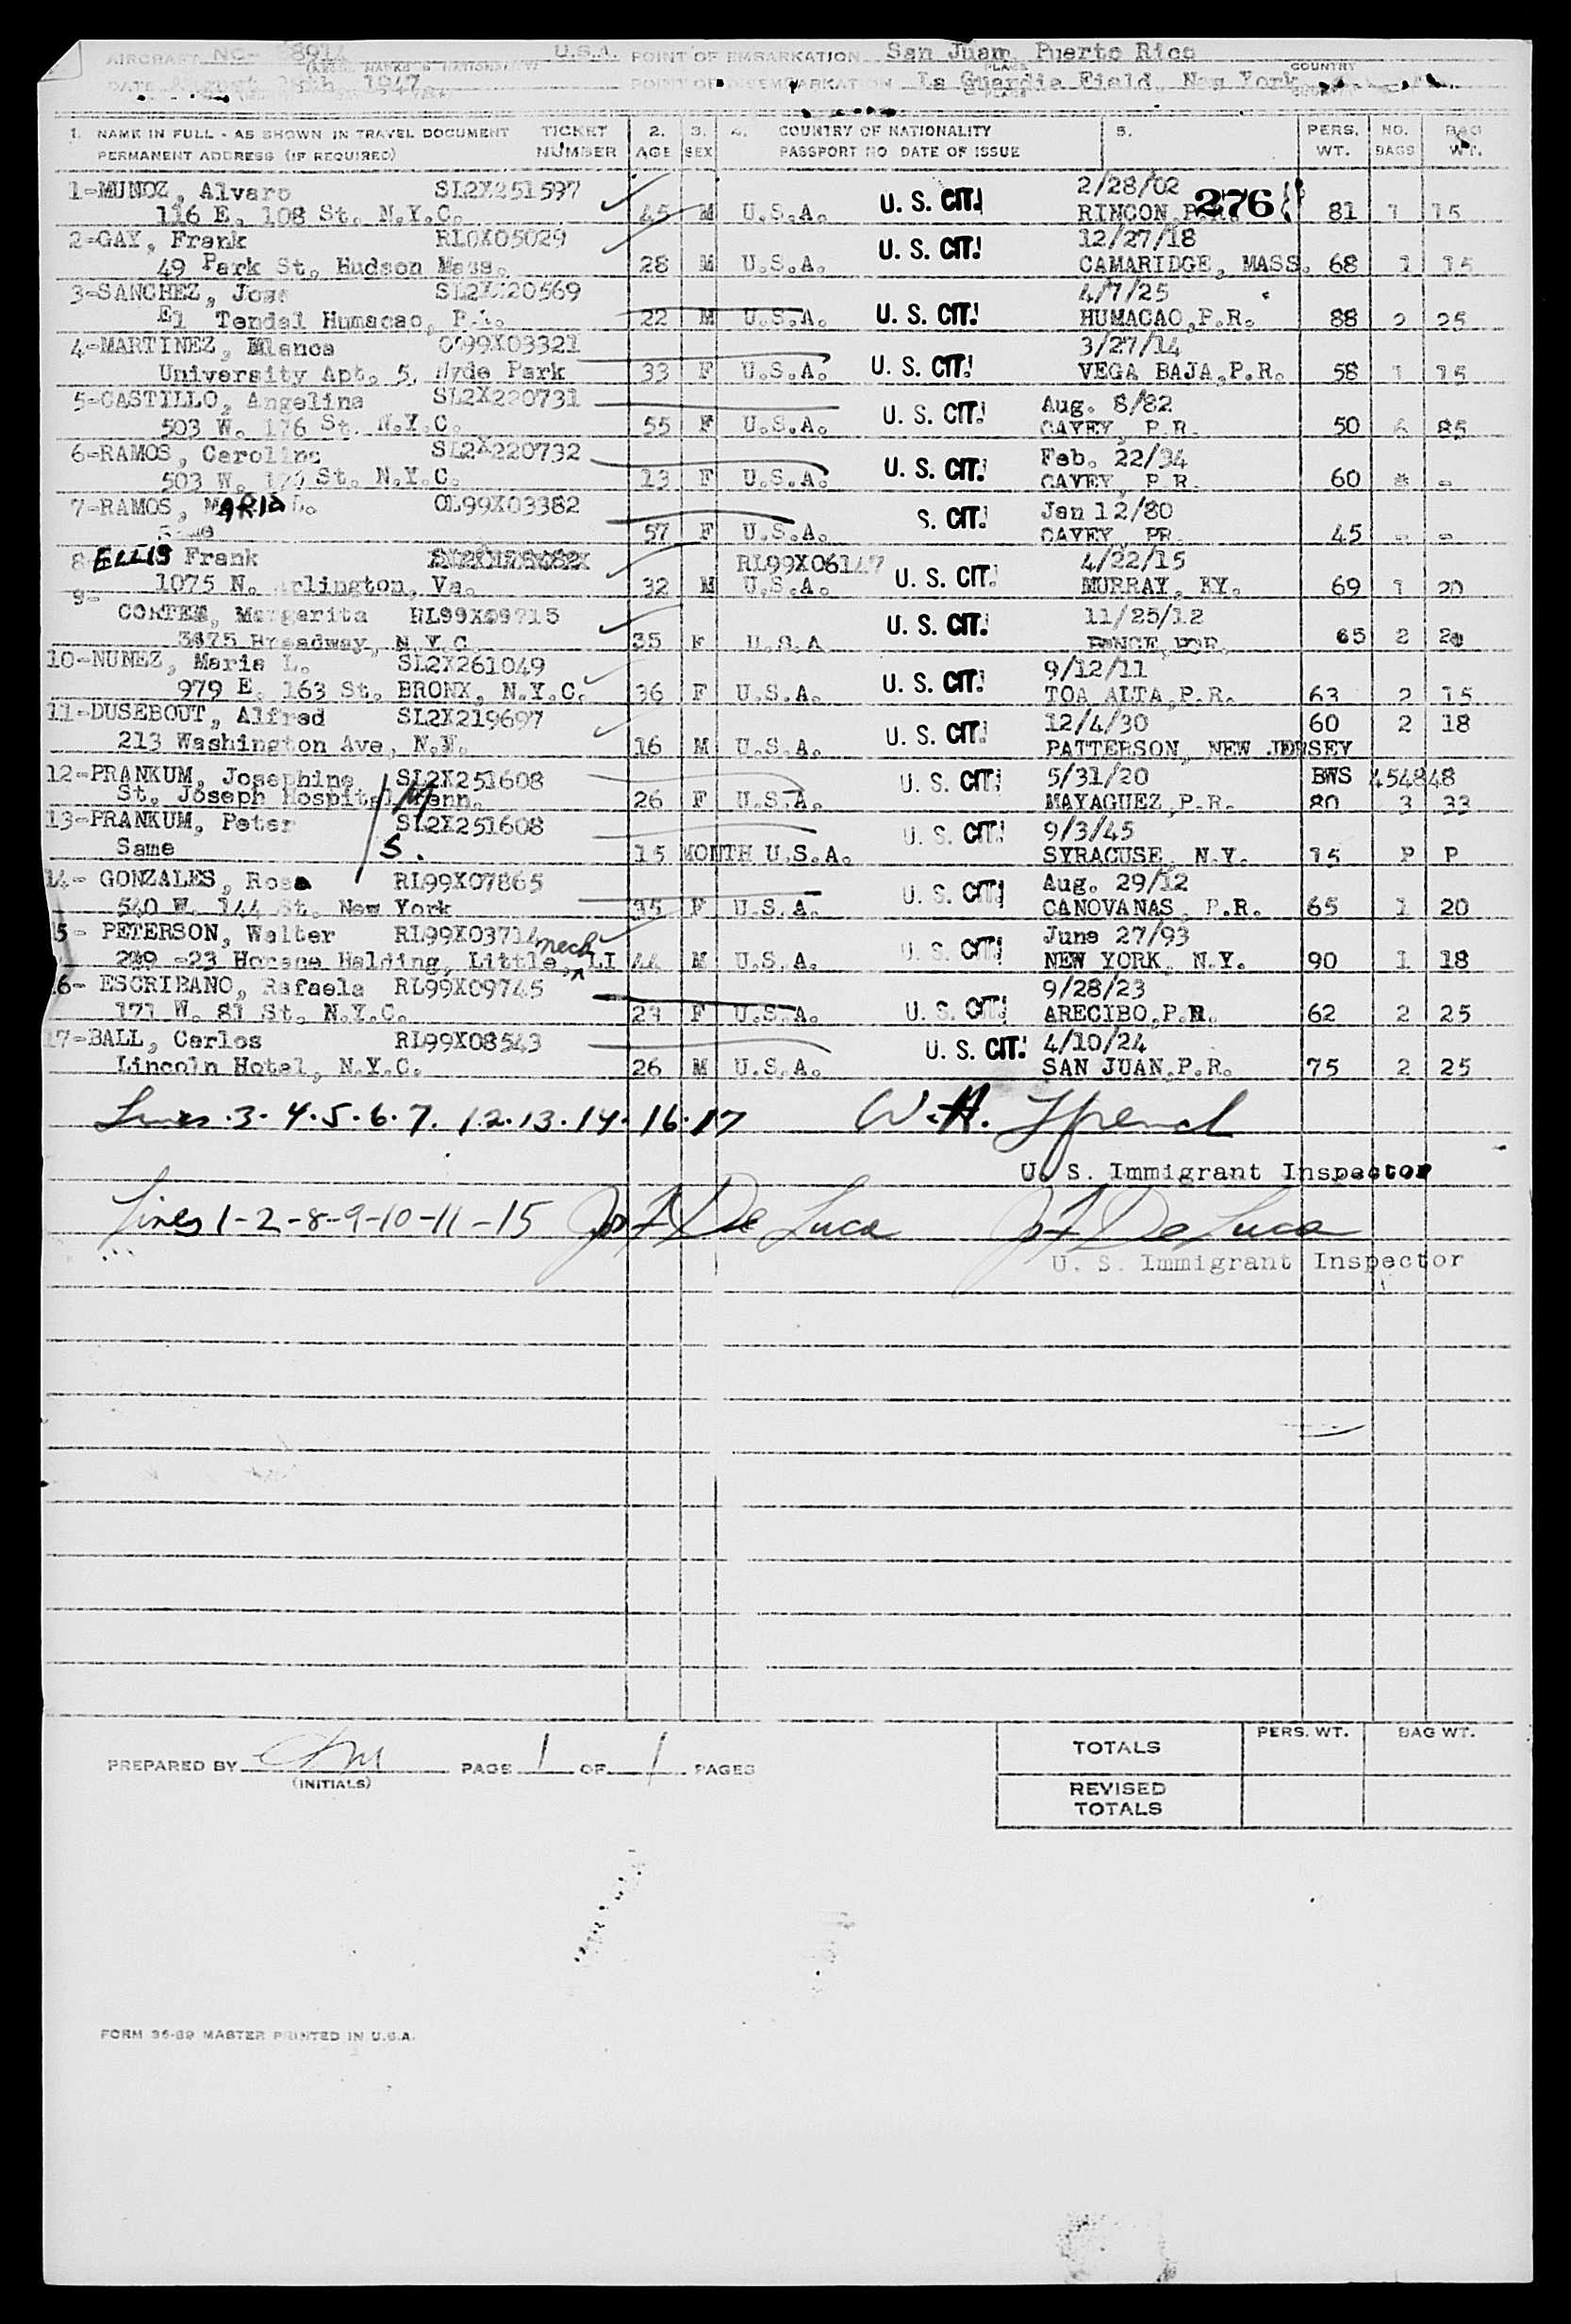 AIRCRAFT NC- U.S.A. POINT OF EMBARKATION San Juan, Puerto Rico
PLACE COUNTRY
DATE August 1947 POINT OF DISEMBARKATION La Guardia Field, New York
1. NAME IN FULL - AS SHOWN IN TRAVEL DOCUMENT TICKET 2. 3. 4. COUNTRY OF NATIONALITY 5. PERS. NO. BAG
PERMANENT ADDRESS (IF REQUIRED) NUMBER AGE SEX PASSPORT NO DATE OF ISSUE WT. BAGS WT.
1-MUNOZ, Alvaro SL2X251597 2/28/02
116 E. 108 St. N.Y.C. 45 M U.S.A. U. S. CIT. RINCON, P.R. 276 81 1 15
2-GAY, Frank RL0X05029 12/27/18
49 Park St. Hudson Mass. 28 M U.S.A. U. S. CIT. CAMARIDGE, MASS. 68 1 15
3-SANCHEZ, Jose 4/7/25
El Tendal Humacao, P.R. 22 M U.S.A. U. S. CIT. HUMACAO,P.R. 88 2 25
4-MARTINEZ, Blanca 3/27/14
University Apt. 5, Hyde Park 33 F U.S.A. U. S. CIT. VEGA BAJA,P.R. 58 1 15
5-CASTILLO, Angelina SL2X220731 Aug. 8/82
503 W. 176 St. N.Y.C. 55 F U.S.A. U. S. CIT. CAYEY, P.R. 50 6 85
6-RAMOS, Carolina SL2X220732 Feb. 22/34
503 W. St. N.Y.C. 13 F U.S.A. U. S. CIT. CAYEY, P.R. 60 * -
7-RAMOS, MARIA OL99X03382 Jan 12/80
Same 57 F U.S.A. S. CIT. CAYEY, PR. 45 - -
8- ELLIS Frank RL99X06147 4/22/15
1075 N. Arlington, Va. 32 M U.S.A. U. S. CIT. MURRAY, KY. 69 1 20
9- CORTES, Margarita RL99X09715 11/25/12
Broadway, N.Y.C. 35 F U.S.A U. S. CIT. 65 2
10-NUNEZ, Maria L. SL2X261049 9/12/11
979 E. 163 St. BRONX, N.Y.C. 36 F U.S.A. U. S. CIT. TOA ALTA,P.R. 63 2 15
11-DUSEBOUT, Alfred SL2X219697 12/4/30 60 2 18
213 Washington Ave, N.N. 16 M U.S.A. U. S. CIT. PATTERSON, NEW JERSEY
12-PRANKUM, Josephine SL2X251608 5/31/20 BWS 454848
St. Joseph Hospital, 26 F U.S.A. U. S. CIT. MAYAGUEZ,P.R. 80 3 33
13-PRANKUM, Peter SL2X251608 9/3/45
Same S. 15 MONTH U.S.A. U. S. CIT. SYRACUSE, N.Y. 15 P P
14- GONZALES, Rosa RL99X07865 Aug. 29/12
540 W. 144 St. New York 35 F U.S.A. U. S. CIT. CANOVANAS, P.R. 65 1 20
5- PETERSON, Walter RL99X03714 June 27/93
-23 Horace Halding, Little neck LI 44 M U.S.A. U. S. CIT. NEW YORK, N.Y. 90 1 18
6- ESCRIBANO, Rafaela RL99X09745 9/28/23
171 W. 81 St. N.Y.C. 23 F U.S.A. U. S. CIT. ARECIBO,P.R. 62 2 25
17-BALL, Carlos RL99X08543 4/10/24
Lincoln Hotel, N.Y.C. 26 M U.S.A. U. S. CIT. SAN JUAN,P.R. 75 2 25
Lines 3. 4. 5. 6. 7. 12. 13. 14. 16. 17 W. H.
U. S. Immigrant Inspector
Lines 1-2-8-9-10-11-15 De Luca De Luca
U. S. Immigrant Inspector
PREPARED BY PAGE 1 OF 1 PAGES
(INITIALS)
PERS. WT. BAG WT.
TOTALS
REVISED
TOTALS
FORM 36-89 MASTER PRINTED IN U.S.A.